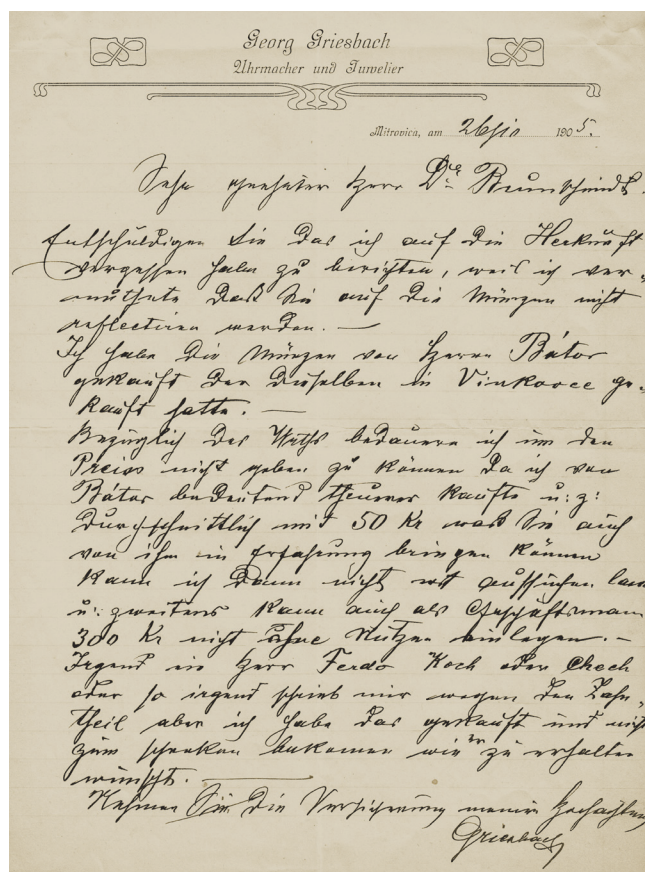 Georg Griesbach
Uhrmacher und Juwelier
Mitrovica, am 26/ 1905.
Sehr geehrter Herr Dr Brunschmidt
Entschuldigen Sie das ich auf die Herkunft
vergessen habe zu berichten, weil ich ver-
muthete daß Sie auf die Münzen nicht
reflectiren werden. —
Ich habe die Münzen von Herrn Bátor
gekauft der dieselben in Vinkovce ge-
kauft hatte. —
Bezüglich des Werths bedauere ich um den
Preiss nicht geben zu können da ich von
Bátor bedeutend theurer kaufte u: z:
durchschnittlich mit 50 Kr was Sie auch
von ihm in Erfahrung bringen können
kann ich dann nicht
u: zweitens kann auch als Geschäftsmann
300 Kr nicht ohne Nutzen einlegen. —
Irgend ein Herr Ferdo Koch oder Chech
oder so irgend schrieb mir wegen den
theil aber ich habe das gekauft und nicht
zum schenken bekomen wie er zu erhalten
wünscht. —
Nehmen Sie die Versicherung meiner Hochachtung
Griesbach